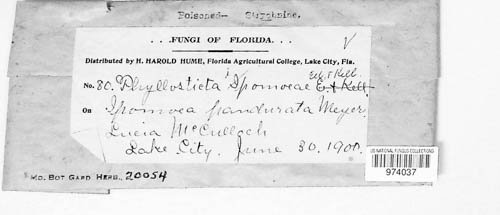 Poisoned— Strychnine.
...FUNGI OF FLORIDA...
Distributed by H. HAROLD HUME, Florida Agricultural College, Lake City, Fla.
Ell. & Kell.
No. 80. Phyllosticta Ipomoeae E. & Kell
On Ipomoea pandurata Meyer
Lucia McCulloch
Lake City. June 30. 1900.
MO. BOT GARD HERB. 20054
US NATIONAL FUNGUS COLLECTIONS
974037